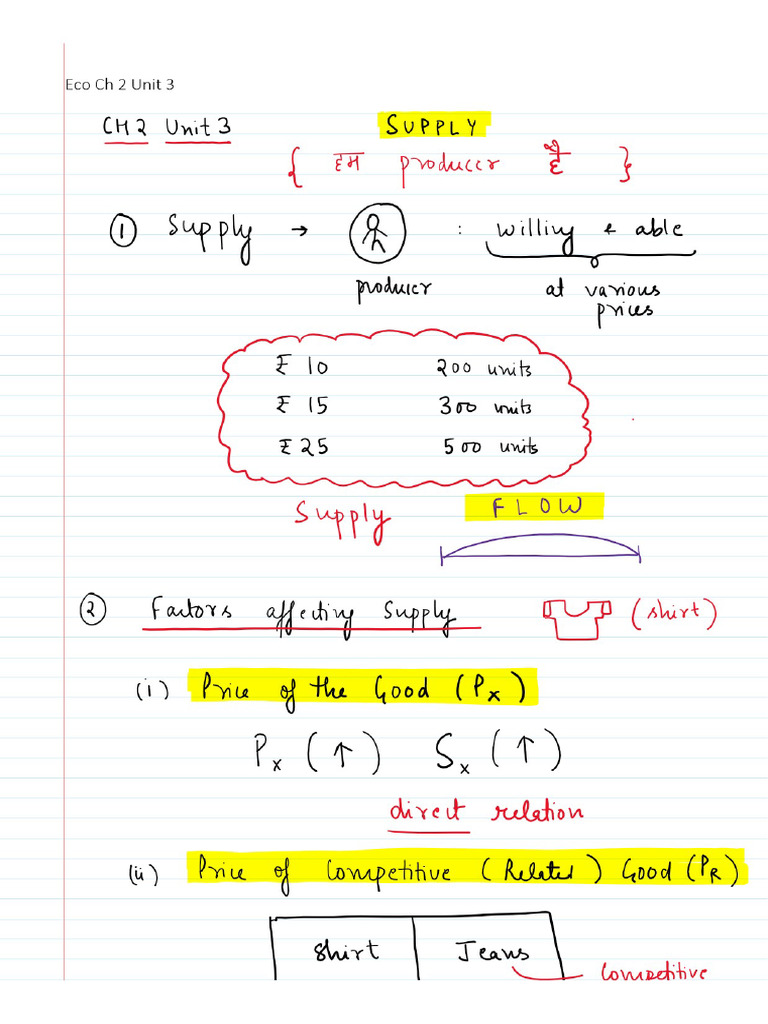 Eco Ch 2 Unit 3
CH 2 Unit 3 SUPPLY
{ हम producer है }
① Supply → : willing & able
producer at various
prices
₹ 10 200 units
₹ 15 300 units
₹ 25 500 units
Supply FLOW
② Factors affecting Supply (shirt)
(i) Price of the Good (Px)
Px (↑) Sx (↑)
direct relation
(ii) Price of Competitive (Related) Good (PR)
Shirt Jeans
Competitive